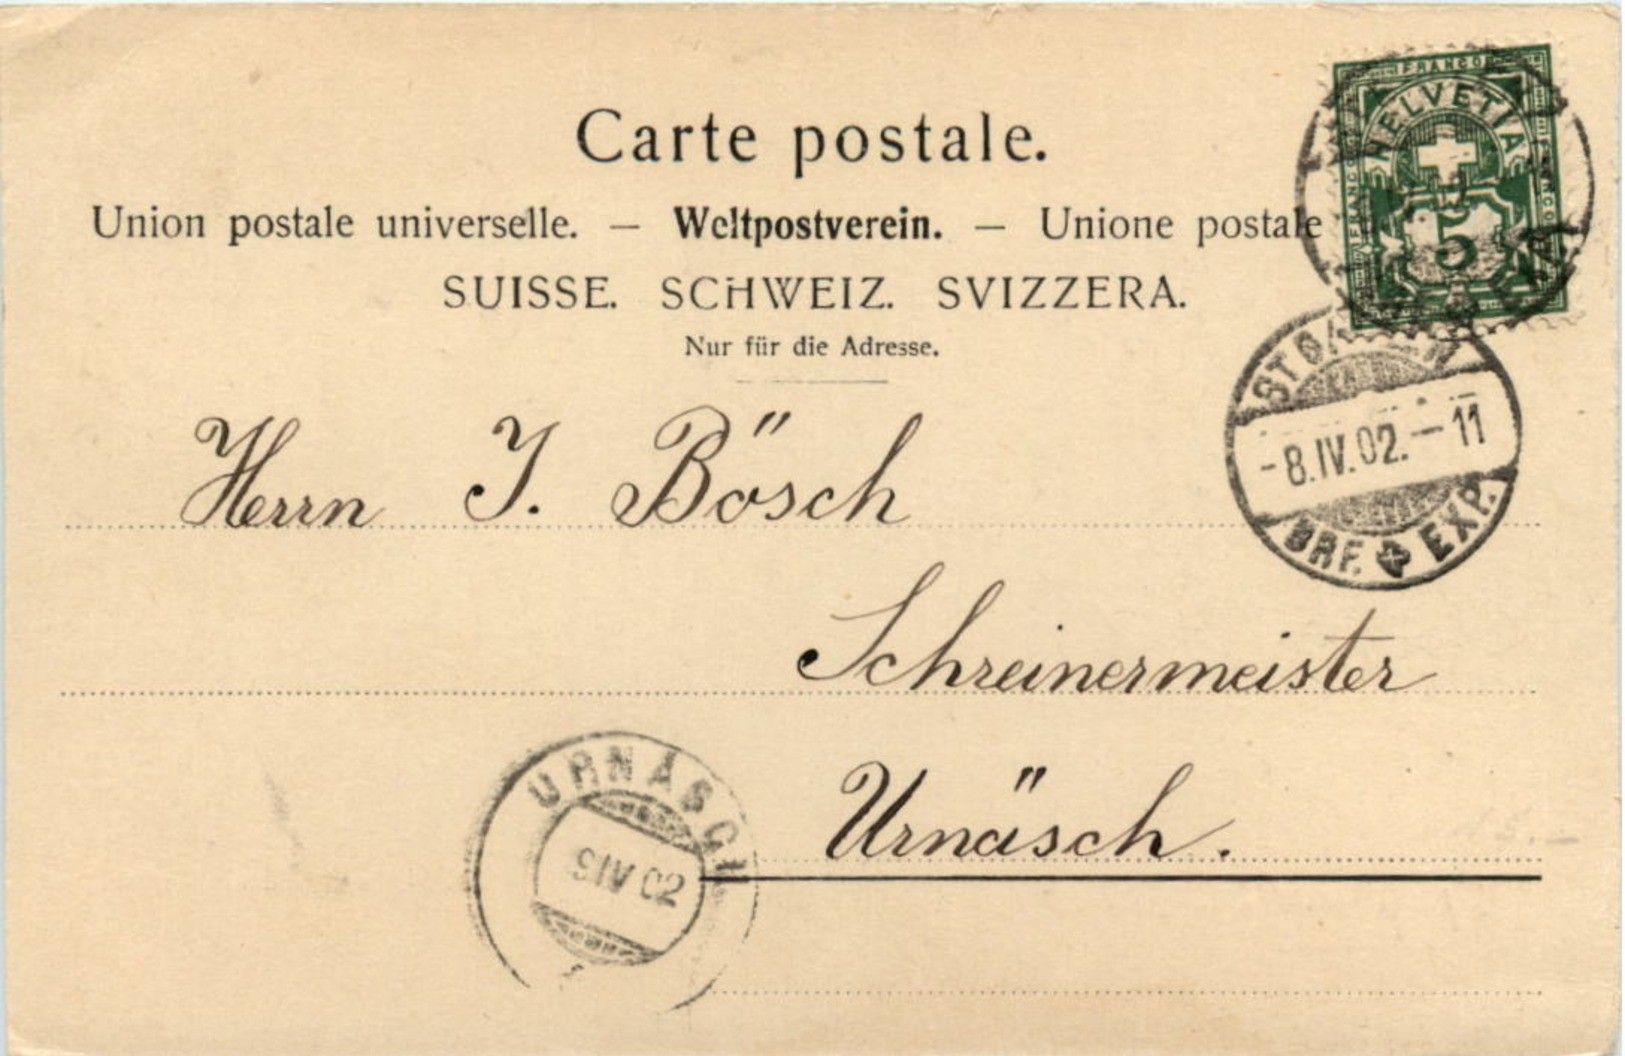 Carte postale.
Union postale universelle. — Weltpostverein. — Unione postale
SUISSE. SCHWEIZ. SVIZZERA.
Nur für die Adresse.
FRANCO
HELVETIA
FRANCO
FRANCO
5
-8.IV.02.-11
BRF. EXP.
Herrn J. Bösch
Schreinermeister
Urnäsch.
URNÄSCH
9 IV 02